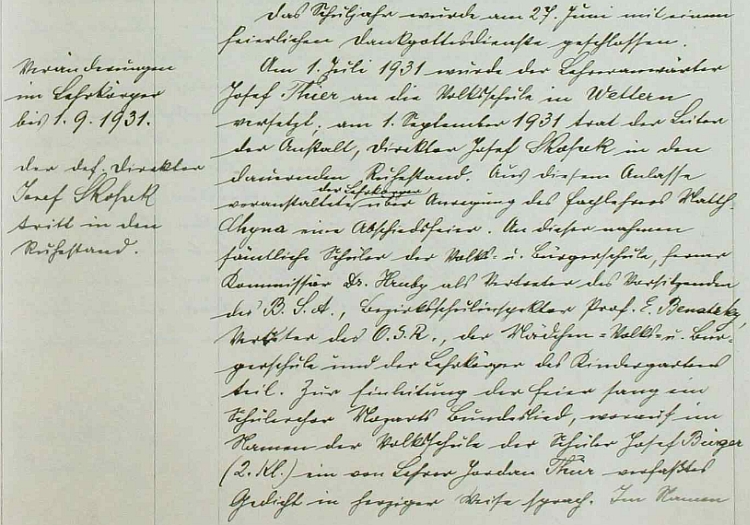 Veränderungen
im Lehrkörper
bis 1. 9. 1931.
der def. Direktor
Josef Skopek
tritt in den
Ruhestand.
Das Schuljahr wurde am 27. Juni mit einem
feierlichen Dankgottesdienste geschlossen.
Am 1. Juli 1931 wurde der Lehreranwärter
Josef Thür an die Volksschule in Wettern
versetzt; am 1. September 1931 trat der Leiter
der Anstalt, Direktor Josef Skopek in den
dauernden Ruhestand. Aus diesem Anlasse
der Lehrkörper
veranstaltete über Anregung des Fachlehrers Matth.
Chyna eine Abschiedsfeier. An dieser nahmen
sämtliche Schüler der Volks- u. Bürgerschule, ferner
Kommissär Dr. Hruby als Vertreter des Vorsitzenden
des B. S. A., Bezirksschulinspektor Prof. E. Benatzky,
Vertreter des O. S. R., der Mädchen-Volks- u. Bür-
gerschule und der Lehrkörper des Kindergartens
teil. Zur Einleitung der Feier sang ein
Schülerchor Mozarts Bundeslied, worauf im
Namen der Volksschule der Schüler Josef Bürger
(2. Kl.) ein von Lehrer Jordan Thür verfaßtes
Gedicht in herziger Weise sprach. Im Namen